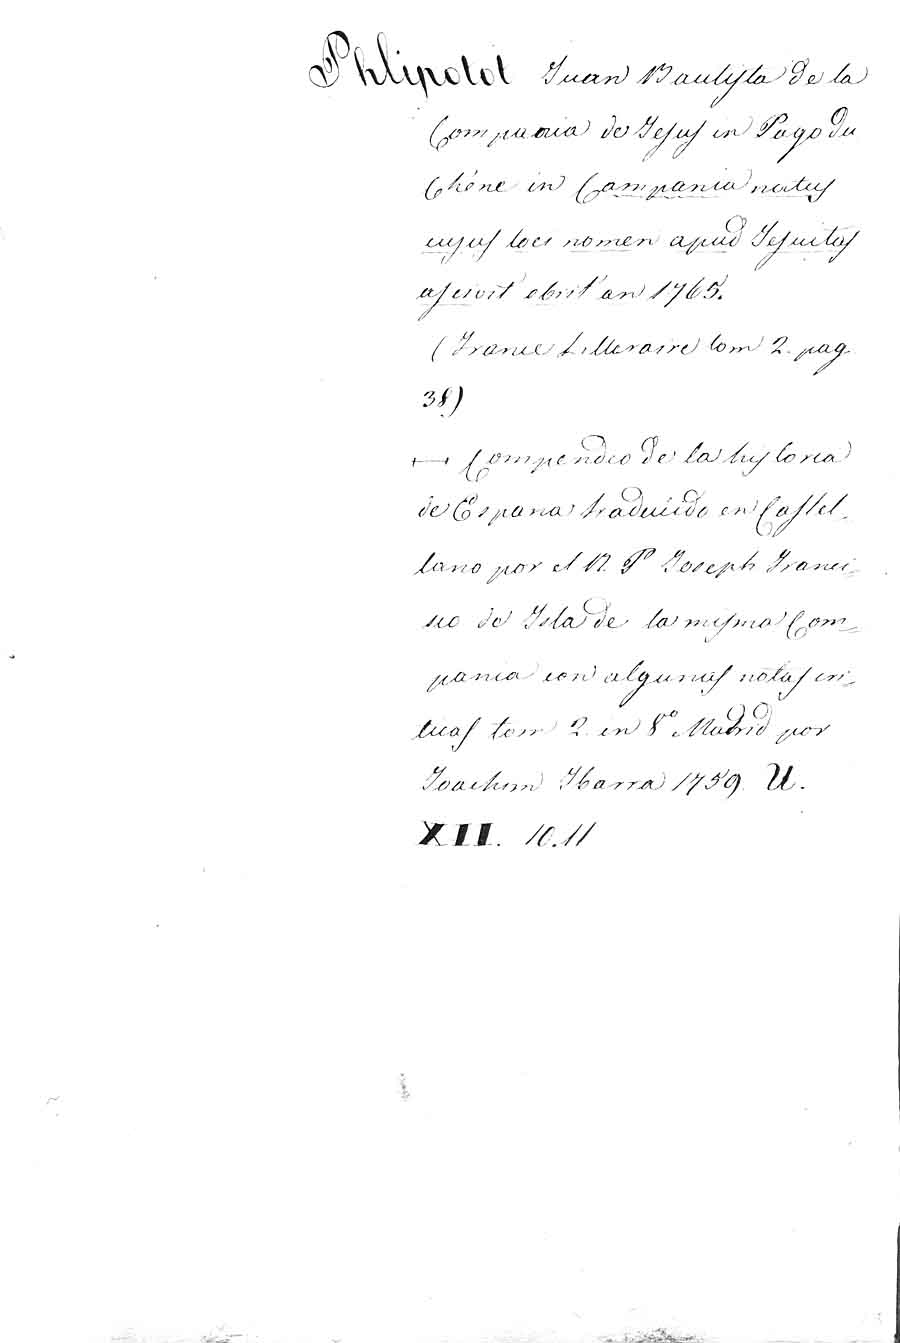 Phlipotot Juan Bautista de la
Compania de Jesus in Pago du
Chéne in Campania natus
cujus loci nomen apud Jesuitas
ascivit obiit an 1765.
(France Litteraire tom 2. pag
38)
Compendio de la historia
de España traducido en Castel-
lano por el R. P. Joseph Franci-
sco de Isla de la misma Com-
pania con algunas notas cri-
ticas tom 2. in 8º Madrid por
Joachim Ibarra 1759. U.
XII. 10.11